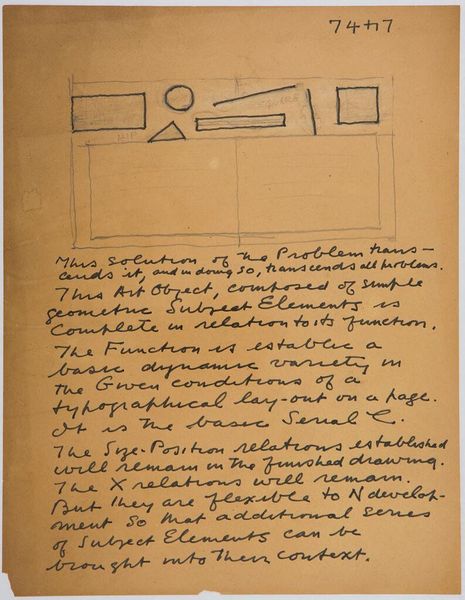 74+7
This solution of the Problem trans-
cends it, and in doing so, transcends all problems.
This Art Object, composed of simple
geometric Subject Elements is
Complete in relation to its function.
The Function is establic a
basic dynamic variety in
the Given conditions of a
typographical lay-out on a page.
It is the basic Serial C.
The Size-Position relations established
will remain in the finished drawing.
The X relations will remain.
But they are flexible to N develop-
ment so that additional series
of Subject Elements can be
brought into their context.